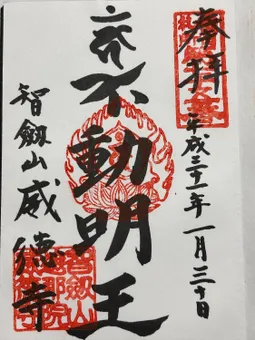 奉拝
平成三十一年一月三十日
不動明王
智劔山威徳寺